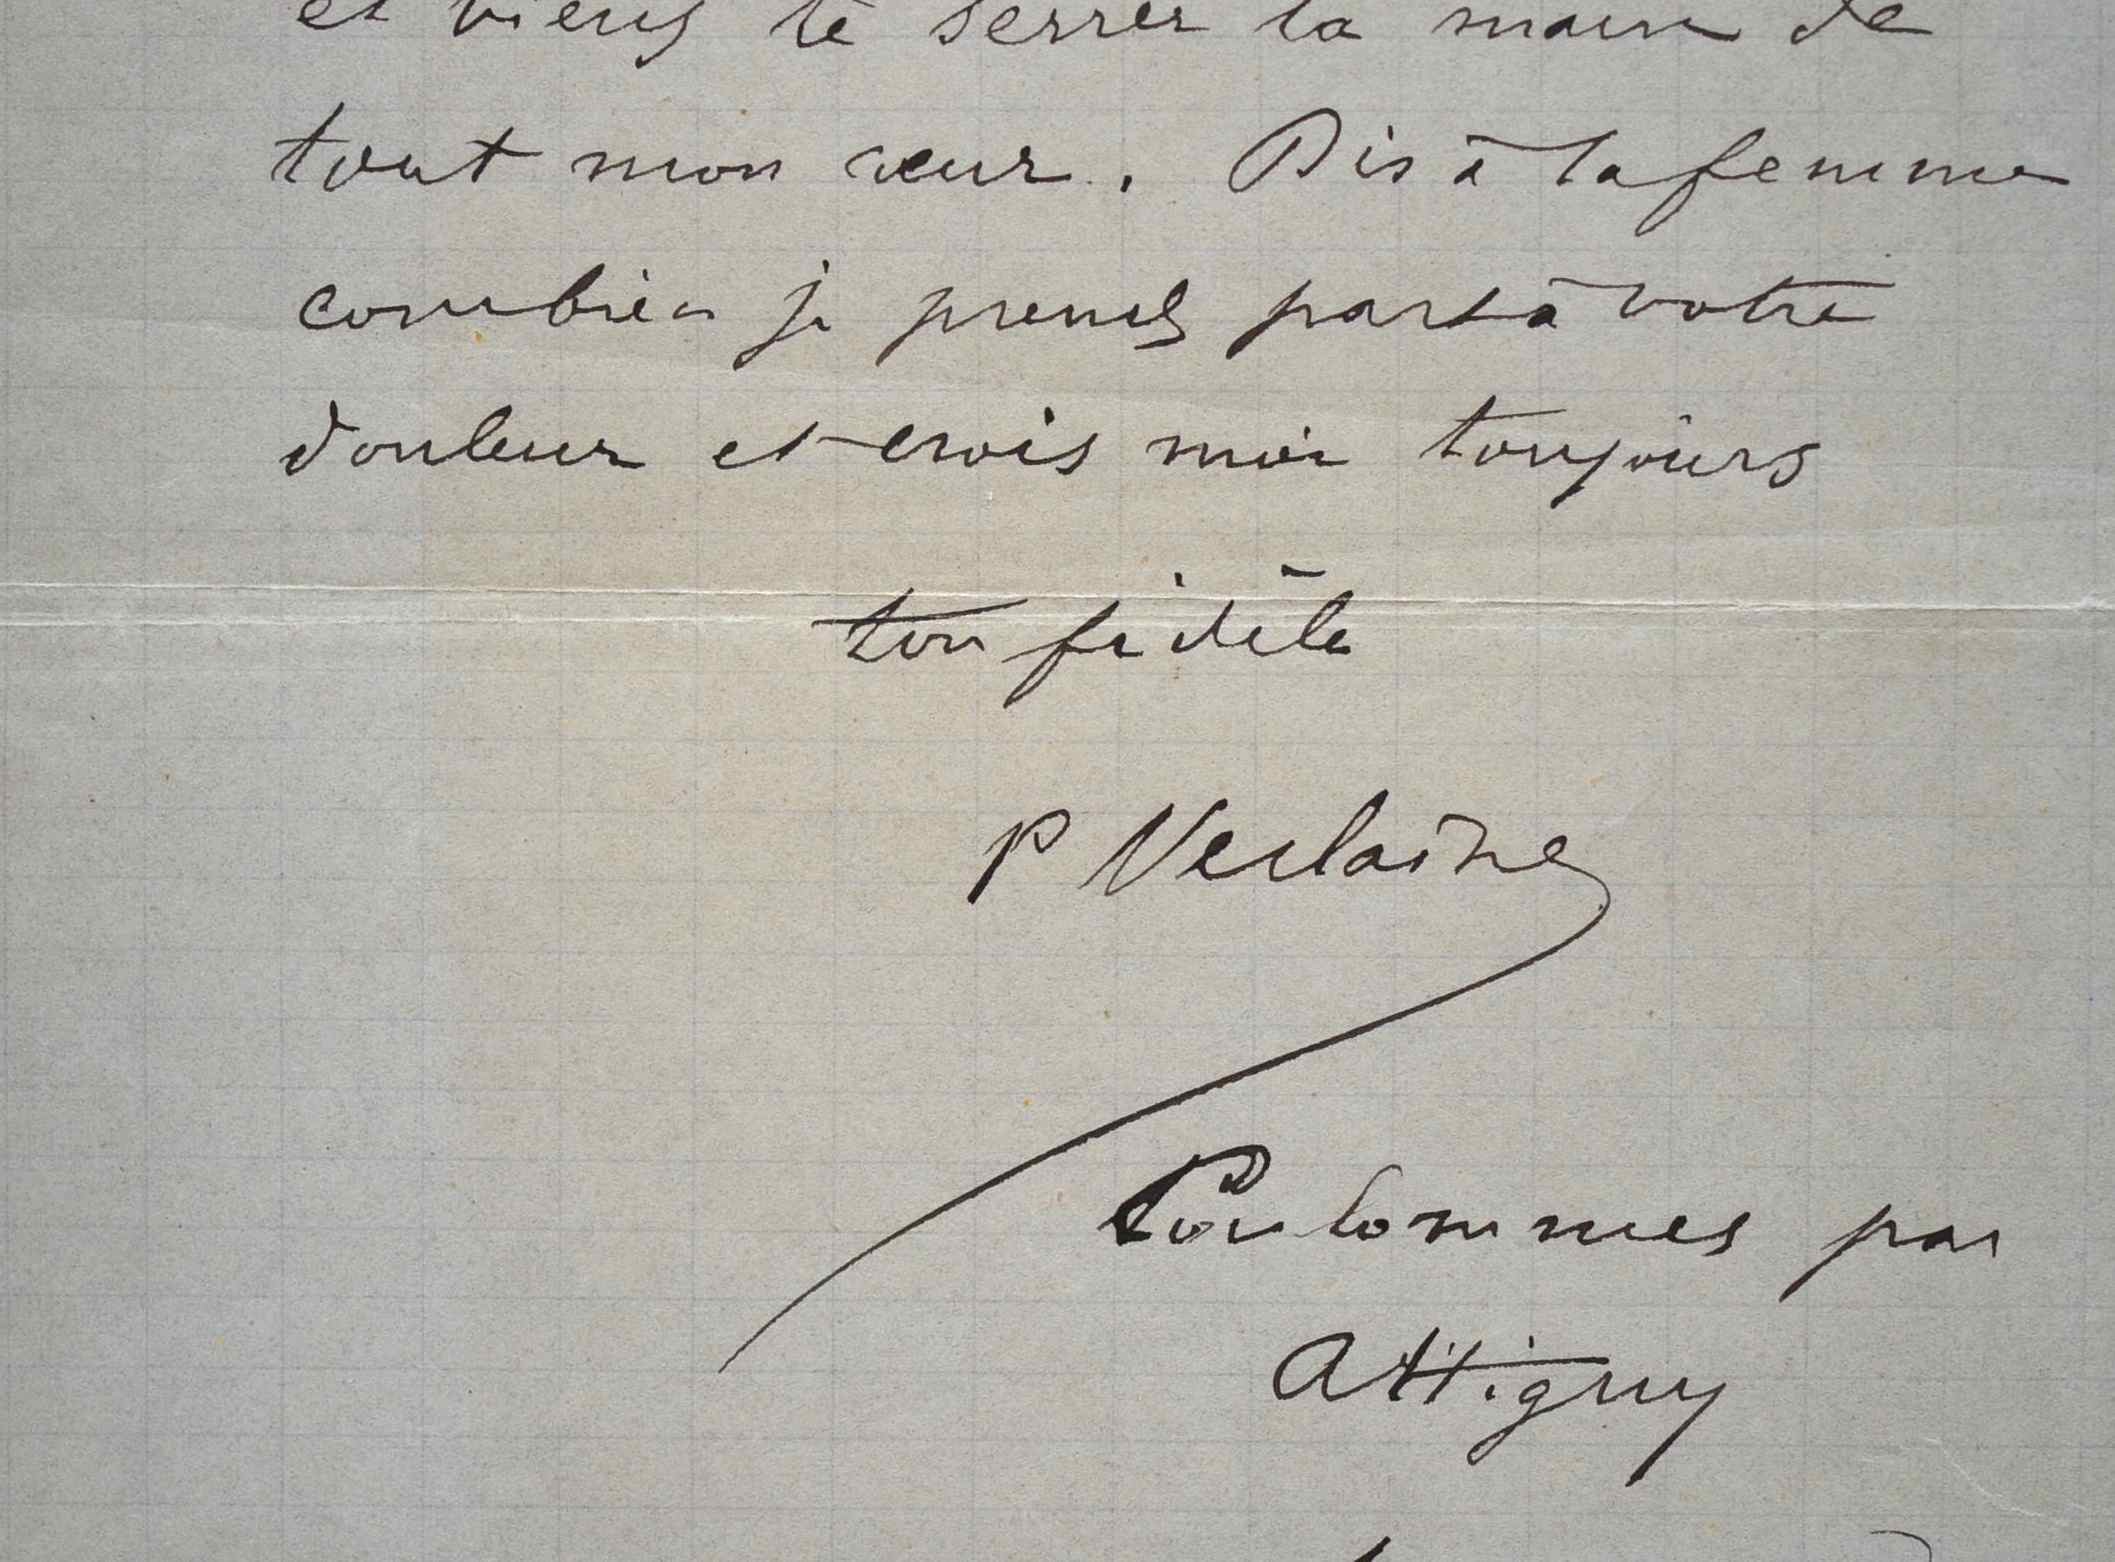 et viens te serrer la main de
tout mon cœur. Dis à ta femme
combien je prends part à votre
douleur et crois moi toujours
ton fidèle
P Verlaine
Coulommes par
Attigny